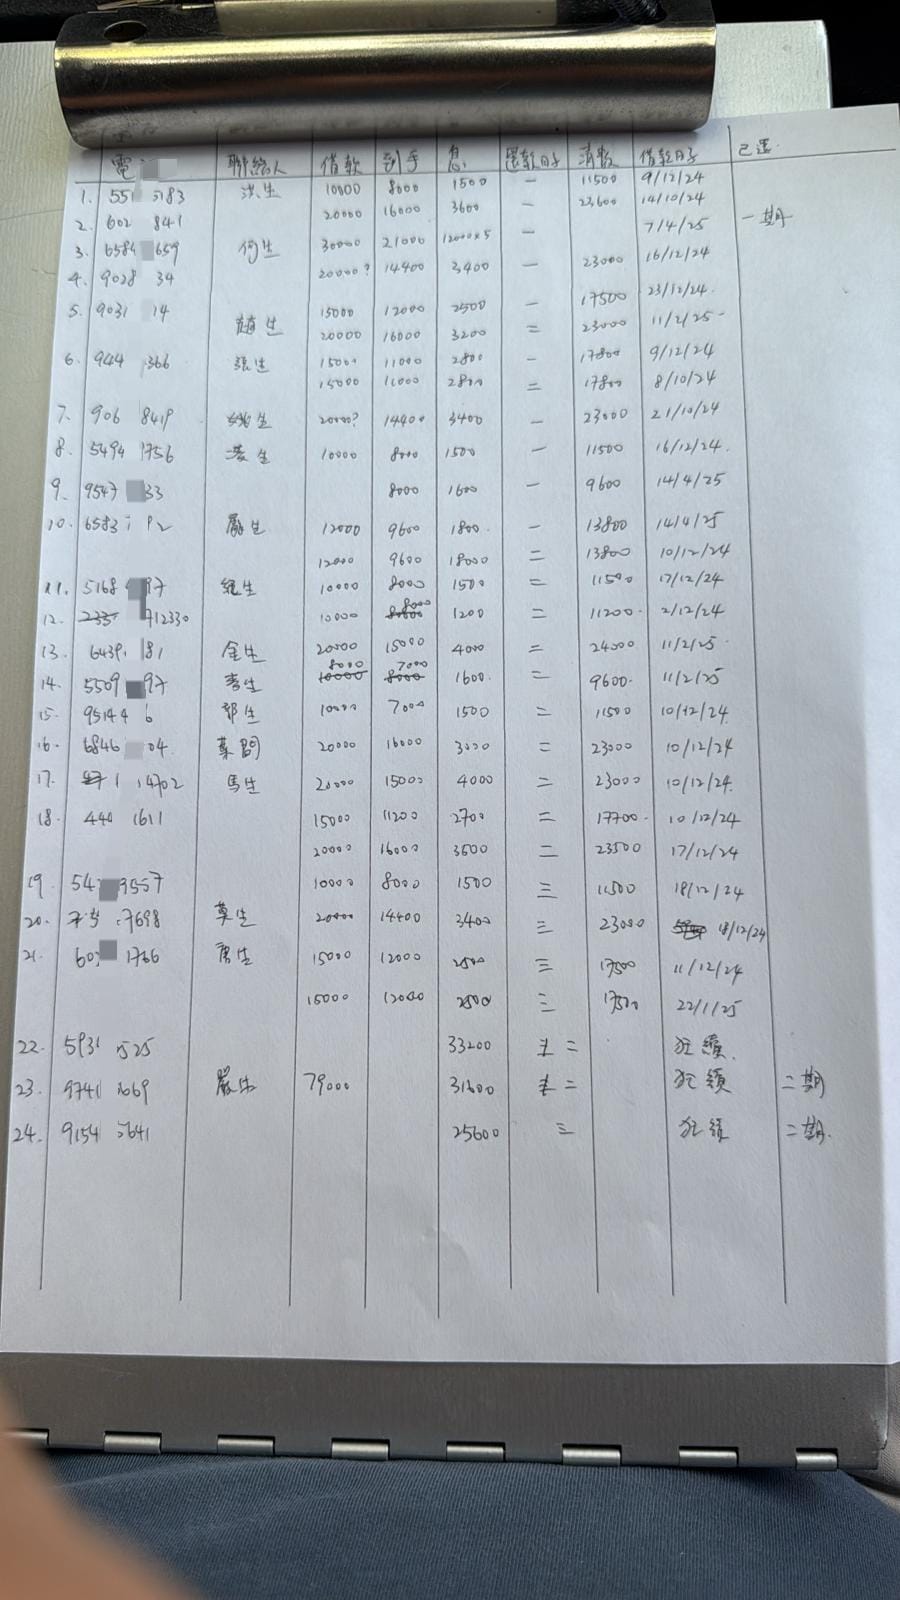 電 聯絡人 借款 到手 息 還款日子 清數 借款日子 已還
1. 551 5183 洪生 10000 8000 1500 一 11500 9/12/24
20000 16000 3600 一 23600 14/10/24
2. 602 841 7/4/25 一期
3. 6584 659 何生 30000 21000 12000×5 一
4. 9028 34 20000? 14400 3400 一 23000 16/12/24
5. 9031 14 15000 12000 2500 一 17500 23/12/24
趙生 20000 16000 3200 二 23000 11/2/25
6. 944 366 張生 15000 11000 2800 一 17800 9/12/24
15000 11000 2800 二 17800 8/10/24
7. 906 8419 生 20000? 14400 3400 一 23000 21/10/24
8. 5494 1756 凌生 10000 8000 1500 一 11500 16/12/24
9. 9547 33 8000 1600 一 9600 14/4/25
10. 6583 92 嚴生 12000 9600 1800 一 13800 14/4/25
12000 9600 18000 二 13800 10/12/24
11. 5168 97 生 10000 8000 1500 二 11500 17/12/24
12. 712330 10000 8000 1200 二 11200 2/12/24
13. 6439 81 金生 20000 15000 4000 二 24000 11/2/25
14. 5509 97 李生 8000 7000 1600 二 9600 11/2/25
15. 95144 6 郭生 10000 7000 1500 二 11500 10/12/24
16. 6846 04 葉問 20000 16000 3000 二 23000 10/12/24
17. 1 14702 馬生 20000 15000 4000 二 23000 10/12/24
18. 440 1611 15000 11200 2700 二 17700 10/12/24
20000 16000 3500 二 23500 17/12/24
19. 54 9557 10000 8000 1500 三 11500 18/12/24
20. 7698 莫生 20000 14400 3400 三 23000 18/12/24
21. 60 1766 唐生 15000 12000 2500 三 17500 11/12/24
15000 12000 2500 三 17500 22/1/25
22. 5931 525 33200 二
23. 9741 669 嚴生 79000 31600 二 二期
24. 9154 641 25600 三 二期